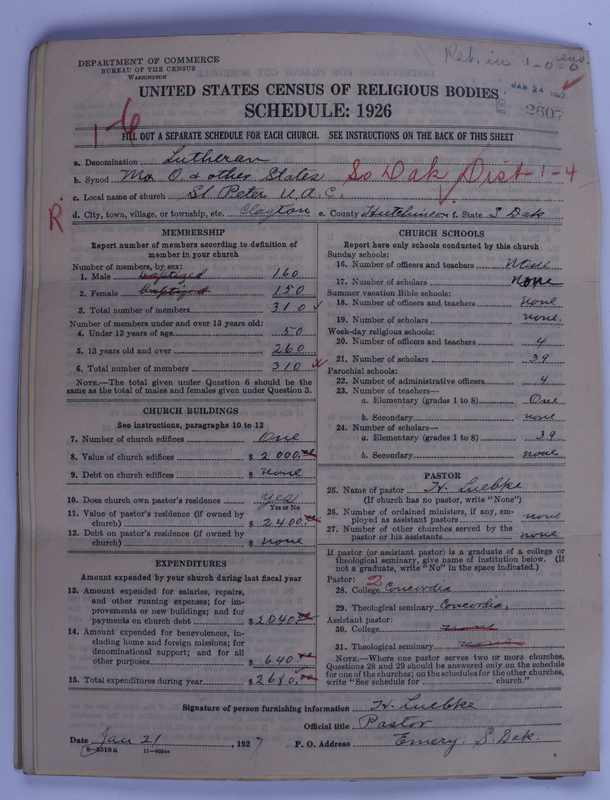 DEPARTMENT OF COMMERCE
BUREAU OF THE CENSUS
WASHINGTON
Ret. in 1-0-0
JAN 24 1927
2607
UNITED STATES CENSUS OF RELIGIOUS BODIES
SCHEDULE: 1926
1-6
FILL OUT A SEPARATE SCHEDULE FOR EACH CHURCH. SEE INSTRUCTIONS ON THE BACK OF THIS SHEET
a. Denomination Lutheran
b. Synod Mo. O. & other States So Dak Dist 1-4
c. Local name of church St. Peter U. A. C.
R
d. City, town, village, or township, etc. Clayton e. County Hutchinson f. State S. Dak
MEMBERSHIP
Report number of members according to definition of
member in your church
Number of members, by sex:
1. Male baptized 160
2. Female baptized 150
3. Total number of members 310
Number of members under and over 13 years old:
4. Under 13 years of age 50
5. 13 years old and over 260
6. Total number of members 310
NOTE.—The total given under Question 6 should be the
same as the total of males and females given under Question 3.
CHURCH BUILDINGS
See instructions, paragraphs 10 to 12
7. Number of church edifices One
8. Value of church edifices $ 2000.
9. Debt on church edifices $ none
10. Does church own pastor's residence yes
Yes or No
11. Value of pastor's residence (if owned by
church) $ 2400.
12. Debt on pastor's residence (if owned by
church) $ none
EXPENDITURES
Amount expended by your church during last fiscal year
13. Amount expended for salaries, repairs,
and other running expenses; for im-
provements or new buildings; and for
payments on church debt $ 2040.
14. Amount expended for benevolences, in-
cluding home and foreign missions; for
denominational support; and for all
other purposes $ 640
15. Total expenditures during year $ 2680.
CHURCH SCHOOLS
Report here only schools conducted by this church
Sunday schools:
16. Number of officers and teachers None
17. Number of scholars none
Summer vacation Bible schools:
18. Number of officers and teachers none
19. Number of scholars none.
Week-day religious schools:
20. Number of officers and teachers 4
21. Number of scholars 39
Parochial schools:
22. Number of administrative officers 4
23. Number of teachers—
a. Elementary (grades 1 to 8) One
b. Secondary none
24. Number of scholars—
a. Elementary (grades 1 to 8) 39
b. Secondary none
PASTOR
25. Name of pastor H. Luebke
(If church has no pastor, write "None")
26. Number of ordained ministers, if any, em-
ployed as assistant pastors none
27. Number of other churches served by the
pastor or his assistants none
If pastor (or assistant pastor) is a graduate of a college or
theological seminary, give name of institution below. (If
not a graduate, write "No" in the space indicated.)
Pastor: 2
28. College Concordia
29. Theological seminary Concordia.
Assistant pastor:
30. College
31. Theological seminary
NOTE.—Where one pastor serves two or more churches,
Questions 28 and 29 should be answered only on the schedule
for one of the churches; on the schedules for the other churches,
write "See schedule for church."
Signature of person furnishing information H. Luebke
Official title Pastor
Date Jan 21, 1927 P. O. Address Emery, S. Dak.
8-5318a 11-8034a